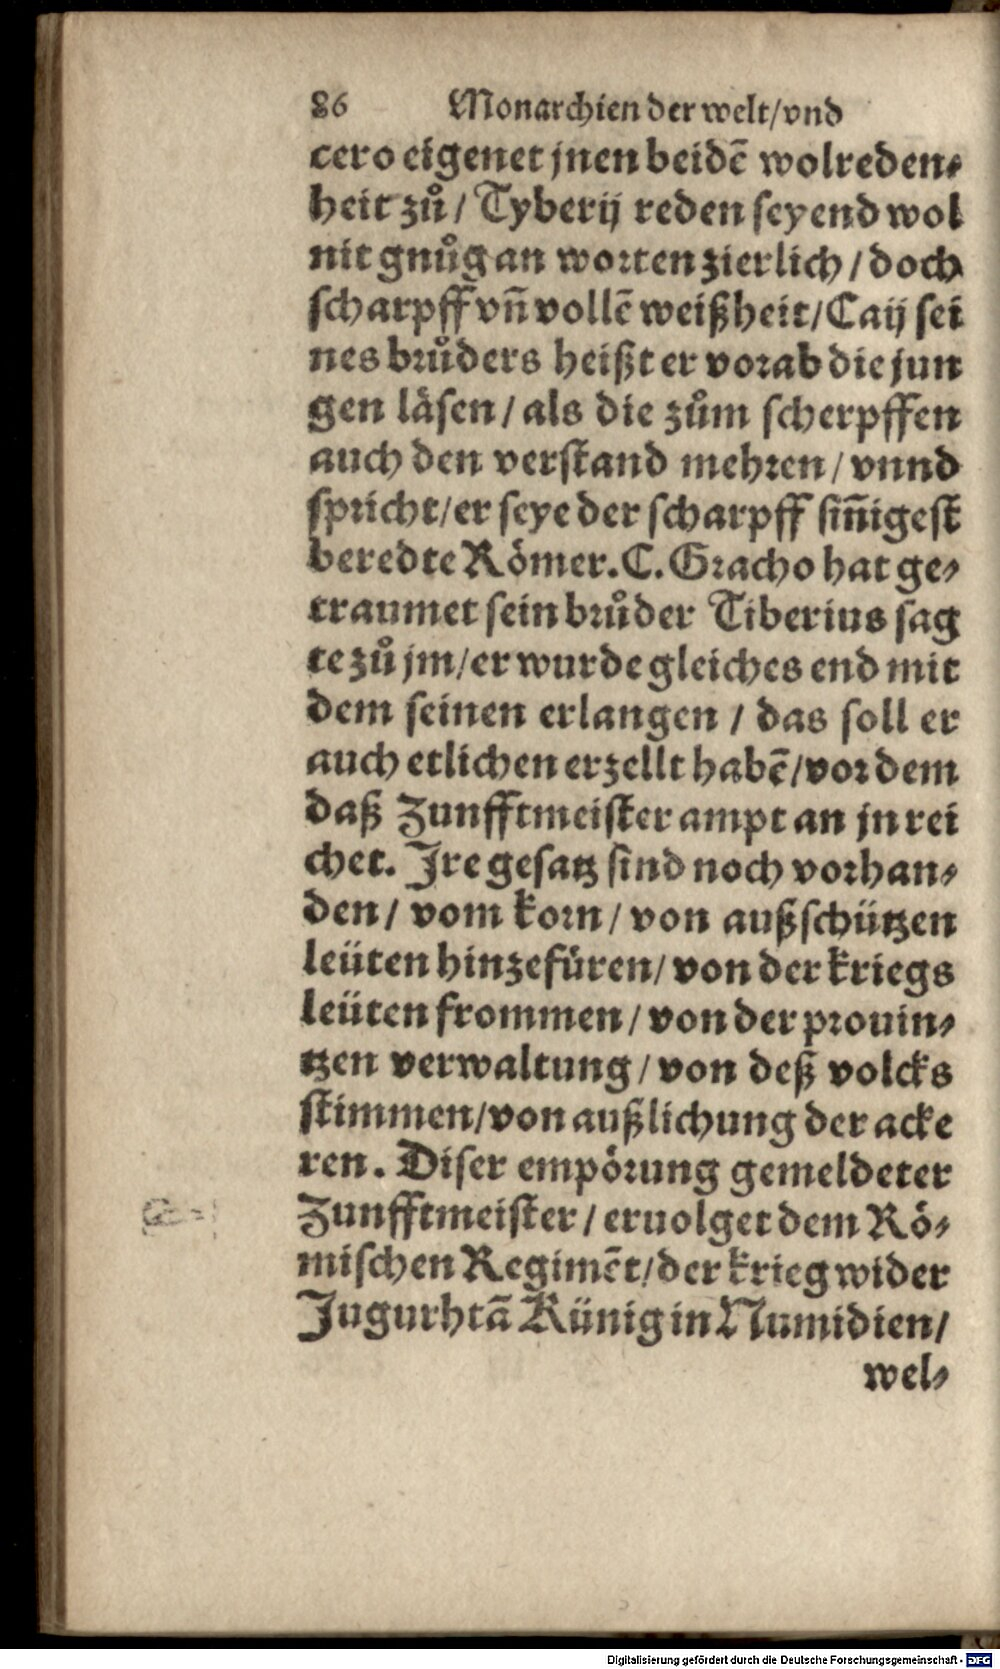 86 Monarchien der welt/vnd
cero eigenet jnen beidē wolreden⸗
heit zů/ Tyberij reden seyend wol
nit gnůg an worten zierlich/doch
scharpff vn̄ vollē weißheit/Caij sei
nes brůders heißt er vorab die jun
gen läsen/als die zům scherpffen
auch den verstand mehren/vnnd
spricht/er seye der scharpff sin̄igest
beredte Römer. C. Gracho hat ge⸗
traumet sein brůder Tiberius sag
te zů jm/er wurde gleiches end mit
dem seinen erlangen/das soll er
auch etlichen erzellt habē/vor dem
daß Zunfftmeister ampt an jn rei
chet. Jre gesatz sind noch vorhan⸗
den/vom korn/von außschützen
leüten hinzefüren/von der kriegs
leüten frommen/von der prouin⸗
tzen verwaltung/von deß volcks
stimmen/von außlichung der acke
ren. Diser empörung gemeldeter
Zunfftmeister/eruolget dem Rö⸗
mischen Regimēt/der krieg wider
Jugurhtā Künig in Numidien/
wel⸗
Digitalisierung gefördert durch die Deutsche Forschungsgemeinschaft - DFG